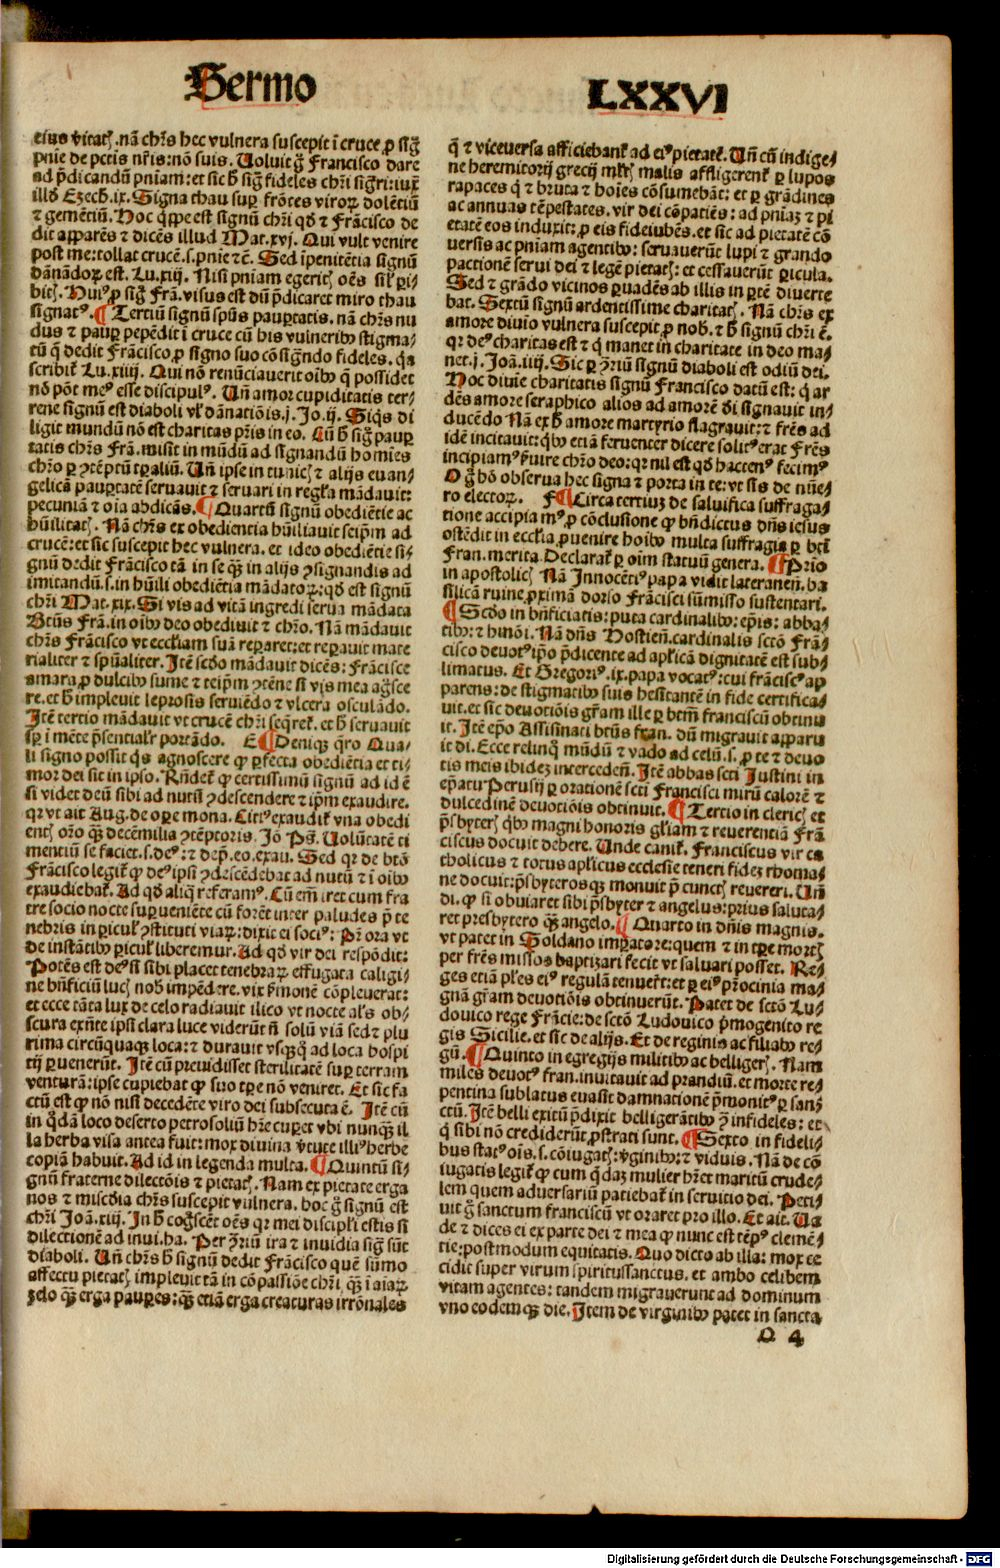 Sermo
LXXVI
eius v̄itatꝭ. nā chr̄s hec vulnera suscepit ī cruce ꝓ sig̊
pn̄ie de pctīs nr̄is: nō suis. Uoluit g̊ Francisco dare
ad p̄dicandū pn̄iam: et sic h̄ sig̊ fideles chr̄i sig̊ri: iux̄
illđ Ezech. ix. Signa thau suꝑ frōtes viroꝝ dolētiū
⁊ gemētiū. Hoc q̄ppe est signū chr̄i qđ ⁊ Frācisco de
dit apparēs ⁊ dicēs illud Mat. xvj. Qui vult venire
post me: tollat crucē. s. pnie ⁊c̄. Sed īpenitētia signū
dānādoꝝ est. Lu. xiij. Nisi pniam egeritꝭ oēs sil̄ ꝑi-
bitꝭ. Huiꝰ ꝓ sig̊ Frā. visus est dū p̄dicaret miro thau
signatꝰ. ¶ Tertiū signū spūs pauꝑtatis. nā chr̄s nu
dus ⁊ pauꝑ pepēdit ī cruce cū his vulneribꝰ stigma-
tū q̄ dedit Frācisco ꝓ signo suo cōsig̊ndo fideles. q̄a
scribit̄ Lu. xiiij. Qui nō renūciauerit oībꝰ q̄ possidet
nō pōt meꝰ esse discipulꝰ. Un̄ amor cupiditatis ter-
rene signū est diaboli vl̓ dānatiōis. j. Jo. ij. Siq̄s di
ligit mundū nō est charitas pr̄is in eo. Cū h̄ sig̊ pauꝑ
tatis chr̄s Frā. misit in mūdū ad sig̊nandū homīes
chr̄o ꝑ ꝯtēptū tꝑaliū. Un̄ ipse in tunicꝭ ⁊ alijs euan-
gelicā pauꝑtatē seruauit ⁊ seruari in regl̓a mādauit:
pecuniā ⁊ oīa abdicās. ¶ Quartū signū obediētie ac
hūilitatꝭ. Nā chr̄s ex obediencia hūiliauit seip̄m ad
crucē: et sic suscepit hec vulnera. et ideo obediētie si-
gnū dedit Frācisco tā in se q̄ꝫ in alijs ꝯsignandis ad
imitandū. s. in hūili obediētia mādatoꝝ: qđ est signū
chr̄i Mat. xix. Si vis ad vitā ingredi serua mādata
Btūs Frā. in oībꝰ deo obediuit ⁊ chr̄o. Nā mādauit
chr̄s Frācisco vt eccl̓iam suā reꝑaret: et reꝑauit mate
rialiter ⁊ spūaliter. Itē sc̄do mādauit dicēs: Frācisce
amara ꝓ dulcibꝰ sume ⁊ teip̄m ꝯtēne si vis mea ag̊sce
re. et h̄ impleuit leprosis seruiēdo ⁊ vlcera osculādo.
Itē tertio mādauit vt crucē chr̄i seq̄ret̄. et h̄ seruauit
sꝑ ī mēte p̄sentialr̄ portādo. E ¶ Deniqꝫ q̄ro Qua-
li signo possit q̄s agnoscere ꝙ ꝑfecta obediētia et ti-
mor dei sit in ipso. Rn̄det̄ ꝙ certissimū signū ad id ē
si videt deū sibi ad nutū ꝯdescendere ⁊ ip̄m exaudire.
qꝛ vt ait Aug. de oꝑe mona. Citiꝰ exaudit̄ vna obedi
entꝭ or̄o q̄ꝫ decēmilia ꝯtēptoris. Jō Ps̄. Uolūtatē ti
mentiū se faciet. s. deꝰ: ⁊ dep̄. eo. exau. Sed qꝛ de btō
Frācisco legit̄ ꝙ deꝰ ipsi ꝯdescēdebat ad nutū ⁊ ī oībꝰ
exaudiebat̄. Ad qđ aliq̄ referamꝰ. Cū em̄ iret cum fra
tre socio nocte suꝑueniēte cū forēt inter paludes p̄ te
nebris in ꝑicul̓ ꝯstituti viaꝝ: dixit ei sociꝰ: Pr̄ ora vt
de instātibꝰ ꝑicul̓ liberemur. Ad qđ vir dei respōdit:
Potēs est deꝰ si sibi placet tenebraꝝ effugata caligi-
ne bn̄ficiū lucꝭ nob̄ impēdere. vix ꝓmonē cōpleuerat:
et ecce tāta lux de celo radiauit ilico vt nocte al̓s ob-
scura exn̄te ipsi clara luce viderūt n̄ solū viā sed ⁊ plu
rima circūquaqꝫ loca: ⁊ durauit vsqꝫq̊ ad loca hospi
tij ꝑuenerūt. Itē cū preuidisset sterilitatē suꝑ terram
venturā: ipse cupiebat ꝙ suo tꝑe nō veniret. Et sic fa
ctū est ꝙ nō nisi decedēte viro dei subsecuta ē. Itē cū
in q̊dā loco deserto petrosoliū hr̄e cuꝑet vbi nunq̄ꝫ il
la herba visa antea fuit: mox diuina v̄tute illiꝰ herbe
copiā habuit. Ad id in legenda multa. ¶ Quintū si-
gnū fraterne dilectōis ⁊ pietatꝭ. Nam ex pietate erga
nos ⁊ misc̄dia chr̄s suscepit vulnera. hoc g̊ signū est
chr̄i Joā. xiij. In h̄ cog̊scēt oēs qꝛ mei discipl̓i estis si
dilectionē ad inui. ha. Per ꝯ̄riū ira ⁊ inuidia sig̊ sūt
diaboli. Un̄ chr̄s h̄ signū dedit Frācisco quē sūmo
affectu pietatꝭ impleuit tā in cōpassiōe chr̄i q̄ꝫ ī aīaꝝ
zelo q̄ꝫ erga pauꝑes: q̄ꝫ etiā erga creaturas irrōnales
q̄ ⁊ viceversa afficiebant̄ ad eiꝰ pietatē. Un̄ cū indige-
ne heremitorij grecij mltꝭ malis affligerent̄ ꝑ lupos
rapaces q̄ ⁊ bruta ⁊ hoīes cōsumebāt: et ꝑ grādines
ac annuas tēpestates. vir dei cōpatiēs: ad pniaꝫ ⁊ pi
etatē eos induxit: ꝓ eis fideiubēs. et sic ad pietatē cō
uersis ac pniam agentibꝰ: seruauerūt lupi ⁊ grando
pactionē serui dei ⁊ legē pietatꝭ: et cessauerūt ꝑicula.
Sed ⁊ grādo vicinos ꝑuadēs ab illis in ꝑtē diuerte
bat. Sextū signū ardentissime charitatꝭ. Nā chr̄s ex
amore diuīo vulnera suscepit ꝓ nob̄. ⁊ h̄ signū chr̄i ē.
qꝛ deꝰ charitas est ⁊ q̄ manet in charitate in deo ma-
net. j. Joā. iiij. Sic ꝑ ꝯ̄riū signū diaboli est odiū dei.
Hoc diuīe charitatis signū Francisco datū est: q̄ ar
dēs amore seraphico alios ad amorē d̄i signauit in-
ducēdo Nā ex h̄ amore martyrio flagrauit: ⁊ fr̄es ad
idē incitauit: q̄bꝰ etiā feruenter dicere solitꝰ erat Fr̄es
incipiamꝰ ẜuire chr̄o deo: qꝛ nil est qđ hactenꝰ fecimꝰ
O g̊ hō obserua hec signa ⁊ porta in te: vt sis de nūe-
ro electoꝝ. F ¶ Circa tertiuꝫ de saluifica suffraga-
tione accipiamꝰ ꝓ cōclusione ꝙ bn̄dictus dn̄s iesus
ostēdit in eccl̓ia ꝓuenire hoībꝰ multa suffragia ꝑ btī
Fran. merita. Declarat̄ ꝑ oīm statuū genera. ¶ Prīo
in apostolicꝭ Nā Innocētiꝰ papa vidit lateranen̄. ba
silicā ruine ꝓximā dorso Frācisci sūmisso sustentari.
¶ Sc̄do in bn̄ficiatis: puta cardinalibꝰ: ep̄is: abba-
tibꝰ: ⁊ hmōi. Nā dn̄s Hostien̄. cardinalis sctō Frā-
cisco deuotꝰ ip̄o p̄dicente ad apl̓icā dignitatē est sub-
limatus. Et Gregoriꝰ. ix. papa vocatꝰ: cui frāciscꝰ ap
parens: de stigmatibꝰ suis hesitantē in fide certifica-
uit. et sic deuotiōis gr̄am ille ꝑ btm̄ franciscū obtinu
it. Itē ep̄o Assisinati btūs fran. dū migrauit apparu
it di. Ecce relinq̊ mūdū ⁊ vado ad celū. s. ꝓ te ⁊ deuo
tis meis ibidez intercedeñ. Itē abbas scti Justini in
ep̄atu Perusij ꝑ orationē scti Francisci mirū calorē ⁊
dulcedinē deuotiōis obtinuit. ¶ Tertio in clericꝭ et
p̄sbyterꝭ q̄bꝰ magni honoris gl̓iam ⁊ reuerentiā Frā
ciscus docuit debere. Unde canit̄. Franciscus vir ca
tholicus ⁊ totus apl̓icus ecclesie teneri fidez rhoma-
ne docuit: p̄sbyterosqꝫ monuit p̄ cunctꝭ reuereri. Un̄
di. ꝙ si obuiaret sibi p̄sbyter ⁊ angelus: prius saluta-
ret presbytero q̄ꝫ angelo. ¶ Quarto in dn̄is magnis.
vt patet in Soldano imꝑatore: quem ⁊ in tꝑe mortꝭ
per fr̄es missos baptizari fecit vt saluari posset. Re-
ges etiā pl̓es eiꝰ regulā tenuer̄t: et ꝑ eiꝰ pr̄ocinia ma-
gnā gr̄am deuotiōis obtinuerūt. Patet de sctō Lu-
douico rege Frācie: de sctō Ludouico p̄mogenito re
gis Sicilie. et sic de alijs. Et de reginis ac filiabꝰ re-
gū. ¶ Quinto in egregijs militibꝰ ac belligerꝭ. Nam
miles deuotꝰ fran. inuitauit ad prandiū. et morte re-
pentina sublatus euasit damnationē p̄monitꝰ ꝑ san-
ctū. Itē belli exitū p̄dixit belligerātibꝰ ꝯ̄ infideles: et
q̄ sibi nō crediderūt ꝓstrati sunt. ¶ Sexto in fideli-
bus statꝰ oīs. s. cōiugatꝭ: v̄ginibꝰ: ⁊ viduis. Nā de cō
iugatis legit̄ ꝙ cum q̄daꝫ mulier hr̄et maritū crude-
lem quem aduersariū patiebat̄ in seruitio dei. Peti-
uit g̊ sanctum franciscū vt oraret pro illo. Et ait. Ua
de ⁊ dices ei ex parte dei ⁊ mea ꝙ nunc est tēpꝰ clemē-
tie: postmodum equitatis. Quo dicto ab illa: mox ce
cidit super virum spiritussanctus. et ambo celibem
vitam agentes: tandem migrauerunt ad dominum
vno eodemqꝫ die. Item de virginibꝰ patet in sancta
Q 4
Digitalisierung gefördert durch die Deutsche Forschungsgemeinschaft - DFG